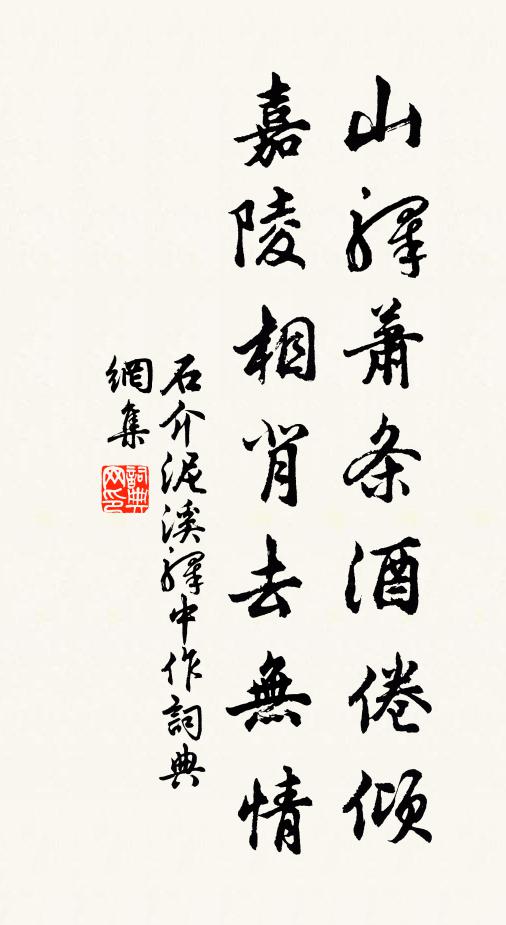 山驛蕭条酒倦傾
嘉陵相背去無情
石介泥溪驛中作詞典
網集
詞典網印